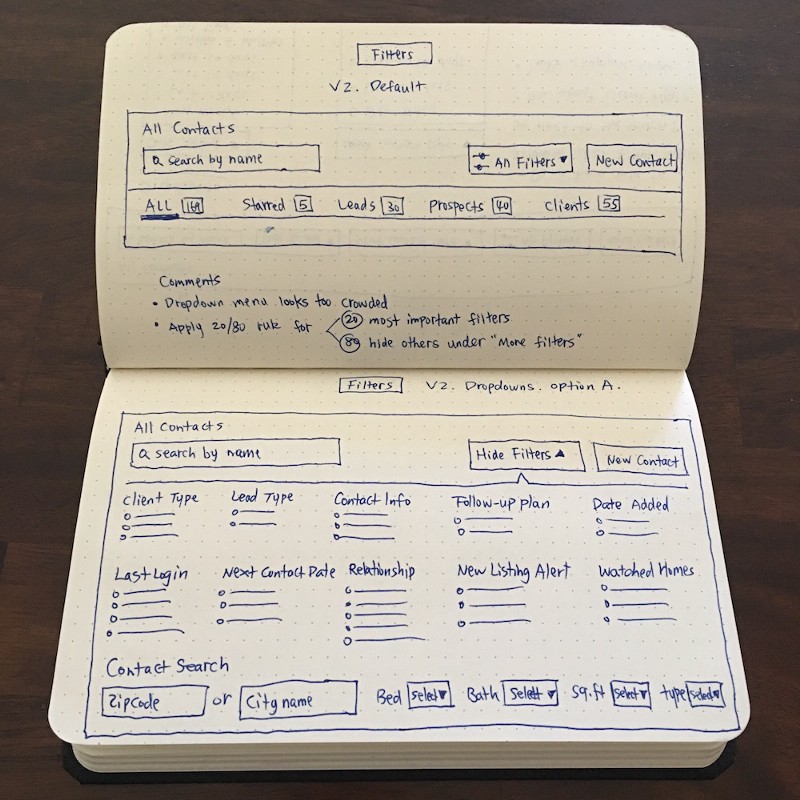 Filters
V2. Default
All Contacts
search by name
All Filters ▼
New Contact
ALL 169 Starred 5 Leads 30 Prospects 40 Clients 55
Comments
• Dropdown menu looks too crowded
• Apply 20/80 rule for 20 most important filters
80 hide others under "More filters"
Filters V2. Dropdowns. option A.
All Contacts
search by name
Hide Filters ▲
New Contact
Client Type Lead Type Contact Info Follow-up plan Date Added
Last Login Next Contact Date Relationship New Listing Alert Watched Homes
Contact Search
Zipcode or City name Bed Select ▼ Bath Select ▼ Sq.ft Select ▼ type Select ▼